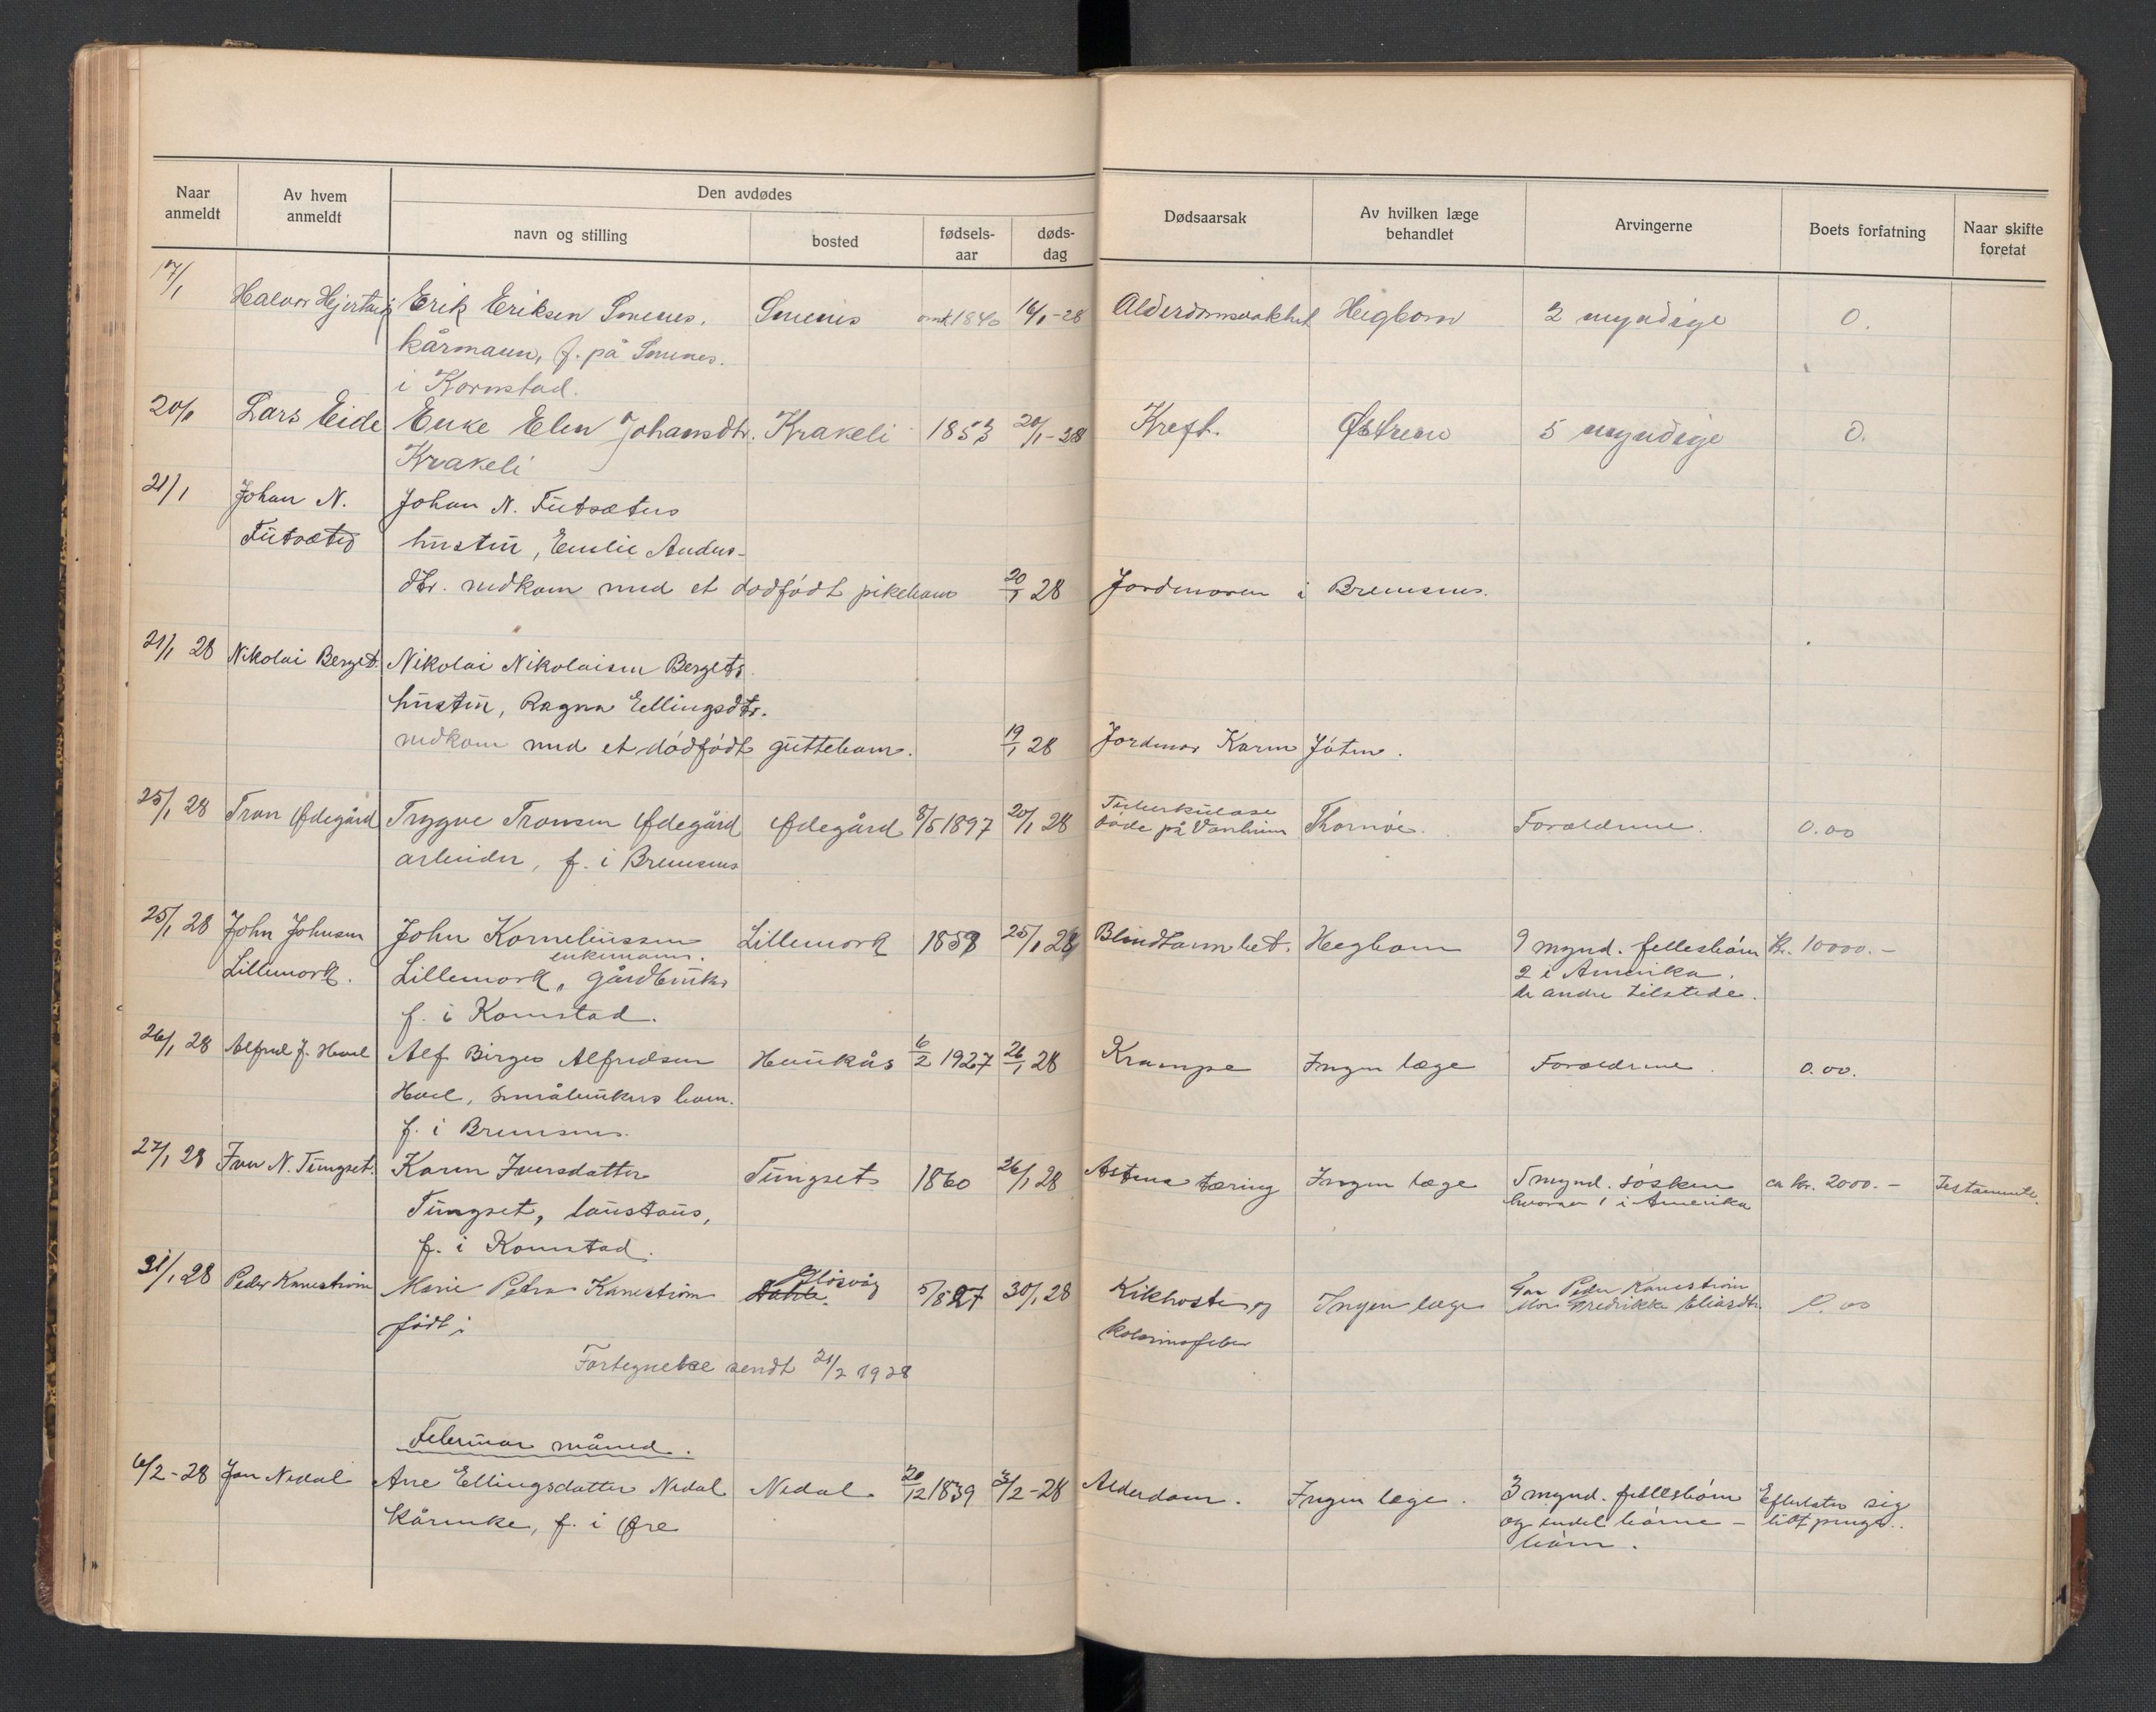 Naar anmeldt
Av hvem anmeldt
Den avdødes
navn og stilling
bosted
fødsels-aar
døds-dag
Dødsaarsak
Av hvilken læge behandlet
Arvingerne
Boets forfatning
Naar skifte foretat
17/1 Halvor Erik Eriksen Smenes. Smenes omk 1840 16/1-28 Alderdomsvakhet 2 myndige 0.
kårmann, f. på Smenes.
i Kornstad.
20/1 Lars Eide Enke Elen Johansdtr. Krakeli 1853 20/1-28 Kreft. Østrem 5 myndige 0.
Krakeli
21/1 Johan N. Johan N. Futsæters
Futsæter hustru, Emilie Anders-
dtr. nedkom med et dødfødt pikebarn 20/1 28 Jordmoren i Bremsnes.
21/1 28 Nikolai Berget. Nikolai Nikolaisen Bergets
hustru, Ragna Ellingsdtr.
nedkom med et dødfødt guttebarn. 19/1 28 Jordmor Karen
25/1 28 Tron Ødegård Trygve Tronsen Ødegård Ødegård 8/5 1897 20/1 28 Tuberkulose Forældrene. 0.00
døde på
arbeider, f. i Bremsnes
25/1 28 John Johnsen John Korneliussen Lillemork 1858 25/1 28 Blindtarmbet. Hegbom 9 mynd. fellesbørn Kr. 10000.-
enkemann. 2 i Amerika.
Lillemork. Lillemork, gårdbruker de andre tilstede.
f. i Kornstad.
26/1 28 Alfred J. Hoel Alf Birger Alfredsen Haukås 6/2 1927 26/1 28 Krampe Ingen læge Forældrene 0.00.
Hoel, småbrukers barn.
f. i Bremsnes.
27/1 28 Iver N. Tungset. Karen Iversdatter Tungset 1860 26/1 28 Astma tæring Ingen læge 5 mynd. søsken ca kr. 2000.- Testamente.
hvorav 1 i Amerika
Tungset, laustaus,
f. i Kornstad.
31/1 28 Peder Kanestrøm Marie Petra Kanestrøm 5/8 27 30/1 28 Kikhoste og Ingen læge Far Peder Kanestrøm 0.00
Mor Fredrikke
født i
Fortegnelse sendt 21/2 1928
Februar måned.
6/2-28 Jon Nedal Ane Ellingsdatter Nedal Nedal 20/12 1839 3/2-28 Alderdom. Ingen læge. 3 mynd. fellesbørn Efterlater sig
og endel børne- litt penger.
kårenke, f. i Øre børn.